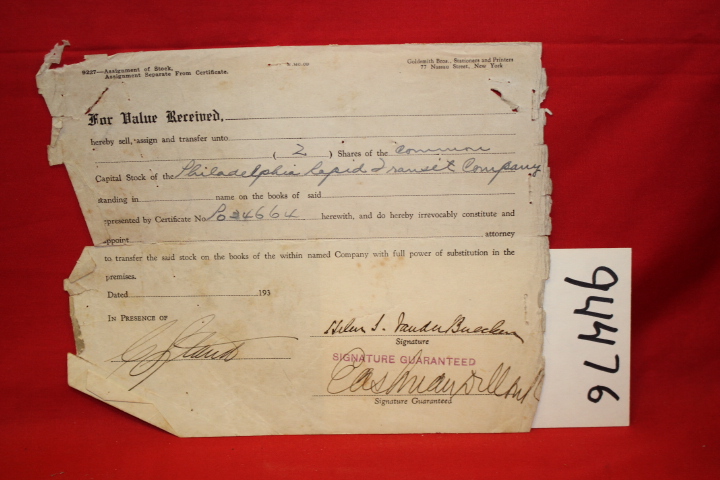 8227—Assignment of Stock,
Assignment Separate From Certificate.
Goldsmith Bros., Stationers and Printers
77 Nassau Street, New York
For Value Received,
hereby sell, assign and transfer unto
( 2 ) Shares of the common
Capital Stock of the Philadelphia Rapid Transit Company
standing in name on the books of said
represented by Certificate No. Po34664 herewith, and do hereby irrevocably constitute and
appoint attorney
to transfer the said stock on the books of the within named Company with full power of substitution in the
premises.
Dated 193
IN PRESENCE OF
Helen S. Vander
Signature
SIGNATURE GUARANTEED
Eastman Dillon
Signature Guaranteed
94476